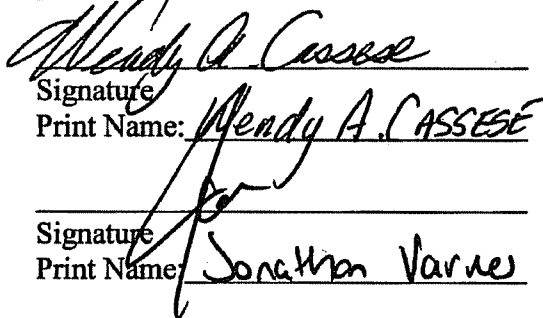 Wendy A. Cassese
Signature
Print Name: Wendy A. CASSESE
Signature
Print Name: Jonathan Varnes